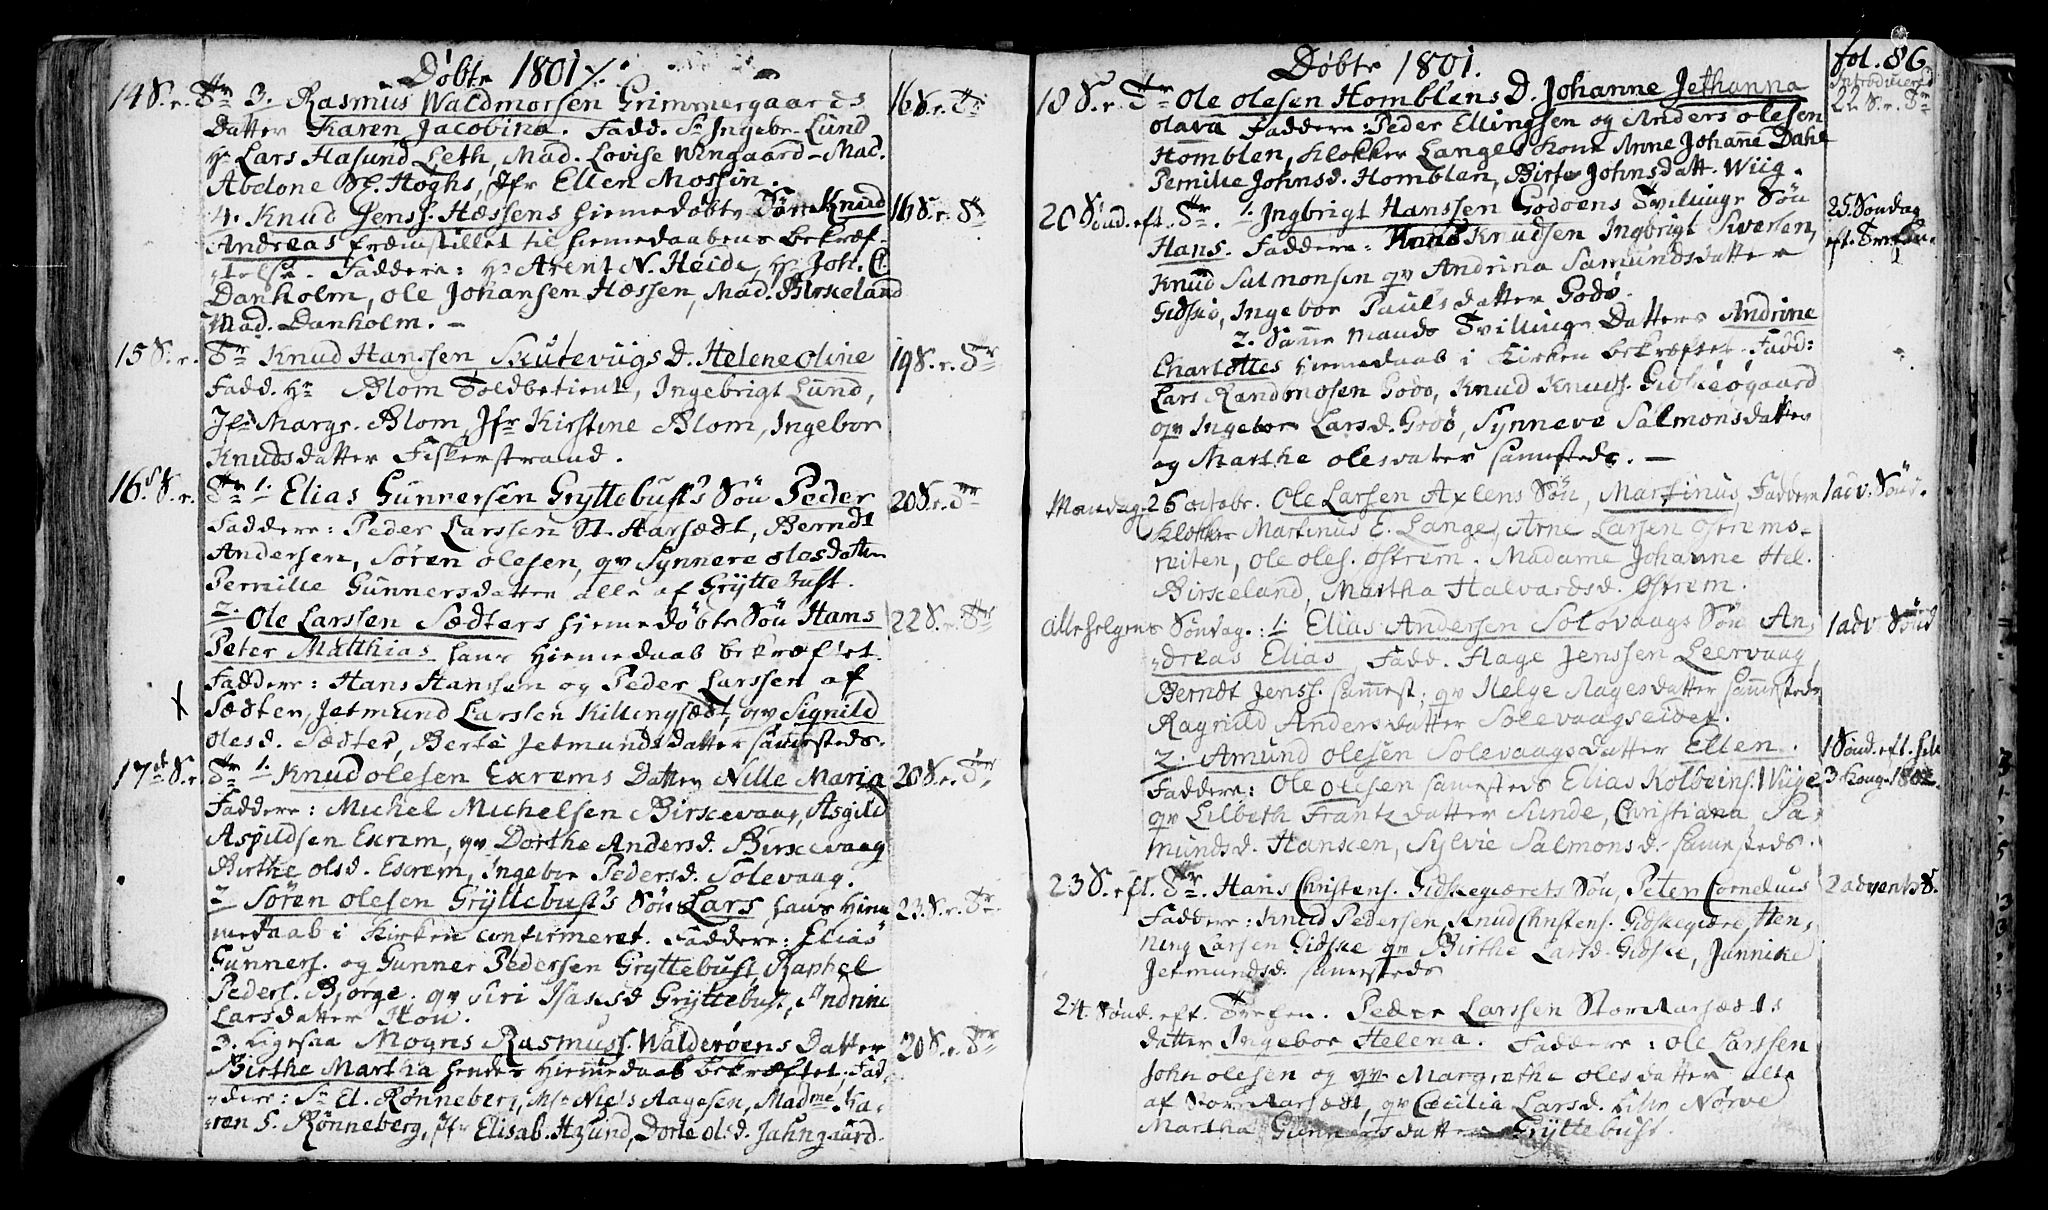 Døbte 1801
14 S. r. Tr 3. Rasmus Waldmorsen Grimmergaards 16 S. r. Tr
Datter Karen Jacobina. Fadd. Sr Ingebr. Lund
Hr Lars Hasund Leth, Mad. Lovise Wingaard - Mad.
Abelone Sl. Høghs, Jfr Ellen Mossin.
4. Knud Jenss. Hæssens hiemedøbte Søn Knud 16 S. r. Tr
Andreas fremstillet til hiemedaabens bekræf-
telse. Faddere: Hr Arent N. Heide, Hr Joh. C.
Danholm, Ole Johansen Hæssen, Mad. Birkeland
Mad. Danholm. -
15 S. r. Tr Knud Hanssen Skuteviigs D. Helene Oline 19 S. r. Tr
Fadd. Hr Blom Toldbetient, Ingebrigt Lund,
Jfr Margr. Blom, Jfr Kirstine Blom, Ingebor
Knudsdatter Fiskerstrand.
16 S. r. Tr 1. Elias Gunnersen Gryttebust's Søn Peder 20 S. r. Tr
Faddere: Peder Larssen St. Harsædt, Berndt
Andersen, Søren Olesen, qv Synneve Olasdatter
Pernille Gunnersdatter alle af Gryttebust.
2. Ole Larssen Sædters hiemedøbte Søn Hans 22 S. r. Tr
Peter Matthias hans hiemedaab bekræftet.
Faddere: Hans Hanssen og Peder Larssen af
Sædter, Jetmund Larssen Killingsædt, qv Signild
Olesd. Sædter, Berte Jetmundsdatter sammesteds.
17de S. r. Tr 1. Knud Olesen Exrems Datter Nille Maria 20 S. r. Tr
Faddere: Michel Michelsen Birkevaag, Asgild
Aspudsen Exrem, qv Dorthe Andersd. Birkevaag
Birthe Olsd. Exrem, Ingebor Pedersd. Solevaag.
2 Søren Olesen Gryttebust's Søn Lars hans hiem- 23. S. r. Tr.
medaab i Kirken confirmeret. Faddere: Elias
Gunners. og Gunner Pedersen Gryttebust, Raphel
Peders. Bjorge. qv Siri Isaksd. Gryttebust, Andrine
Larsdatter Hou.
3. Ligesaa Mogns Rasmuss. Walderøens Datter 20 S. r. Tr
Birthe Martha hendes hiemedaab bekræftet, Fad-
dere: Sr El. Rønneberg, Mr Niels Aagesen, Madme Ka-
ren S. Rønneberg, Jfr Elisab. Hasund, Dorte Olsd. Jahngaard.
Døbte 1801. fol. 86
Introducered
18 S. r. Tr Ole Olesen Homblens D. Johanne Jethanna 22 S. r. Tr
Olava Faddere: Peder Ellingsen og Anders Olesen
Homblen, Klokker Langes kone Anne Johanne Dahl
Pernille Johnsd. Homblen, Birte Johnsdatt. Wiig.
20 Sønd. eft. Tr. 1. Ingbrigt Hanssen Godøens Tvillings Søn 25 Søndag
Hans. Faddere: Knud Knudsen Ingbrigt Iversen, eft. Trefh.
Knud Salmonsen qv Andrina Samundsdatter
Gidskø, Ingebor Paulsdatter Godø.
2. Samme Mands Tvillings Datters Andrine
Charlottes hiemedaab i Kirken bekræftet. Fadd:
Lars Randmosen Godø, Knud Knuds. Gidskeøgaard
qv Ingebor Larsd. Godø, Synneve Salmonsdatter
og Marthe Olesdatter sammesteds. -
Mandag 26 Octobr. Ole Larsen Axlens Søn, Martinus, Faddere 1 adv. Sønd.
Klokker Martinus E. Lange, Arne Larsen
Ole Oles. Østrem. Madame Johanne Hel.
Birkeland, Martha Halvardsd. Østrem.
Allehelgens Søndag.: 1. Elias Andersen Solevaags Søn An- 1 adv Sønd
dreas Elias, Fadd. Hage Jenssen Leervaag
Berndt Jenss. sammest: qv Helge Hagesdatter sammesteds
Ragnild Andersdatter Solevaagseidet.
2. Amund Olesen Solevaagsdatter Ellen. 1 Sønd. eft. hel.
Faddere: Ole Olesen sammesteds Elias Kolbeins. Wiig 3 Kong. 1802.
qv Lilbeth Frantzdatter Sunde, Christiana Sa-
mundsd. Hansken, Sylvie Salmonsd. sammesteds.
23 S. eft. Tr. Hans Christens. Gidskegiærets Søn, Peter Cornelius 2 advents S.
Faddere: Knud Pedersen, Knud Christens. Gidskegiære, Hen-
ning Larsen Gidske qv Birthe Larsd. Gidske, Jannike
Jetmundsd. sammesteds
24. Sønd. eft. Trefh. Peder Larssen Storharsædts
datter Ingebor Helena. Faddere: Ole Larssen
John Olesen og qv Margrethe Olesdatter alle
af Storharsædt, qv Cæcilia Larsd. Nørve
Martha Gunnersdatter Gryttebust.